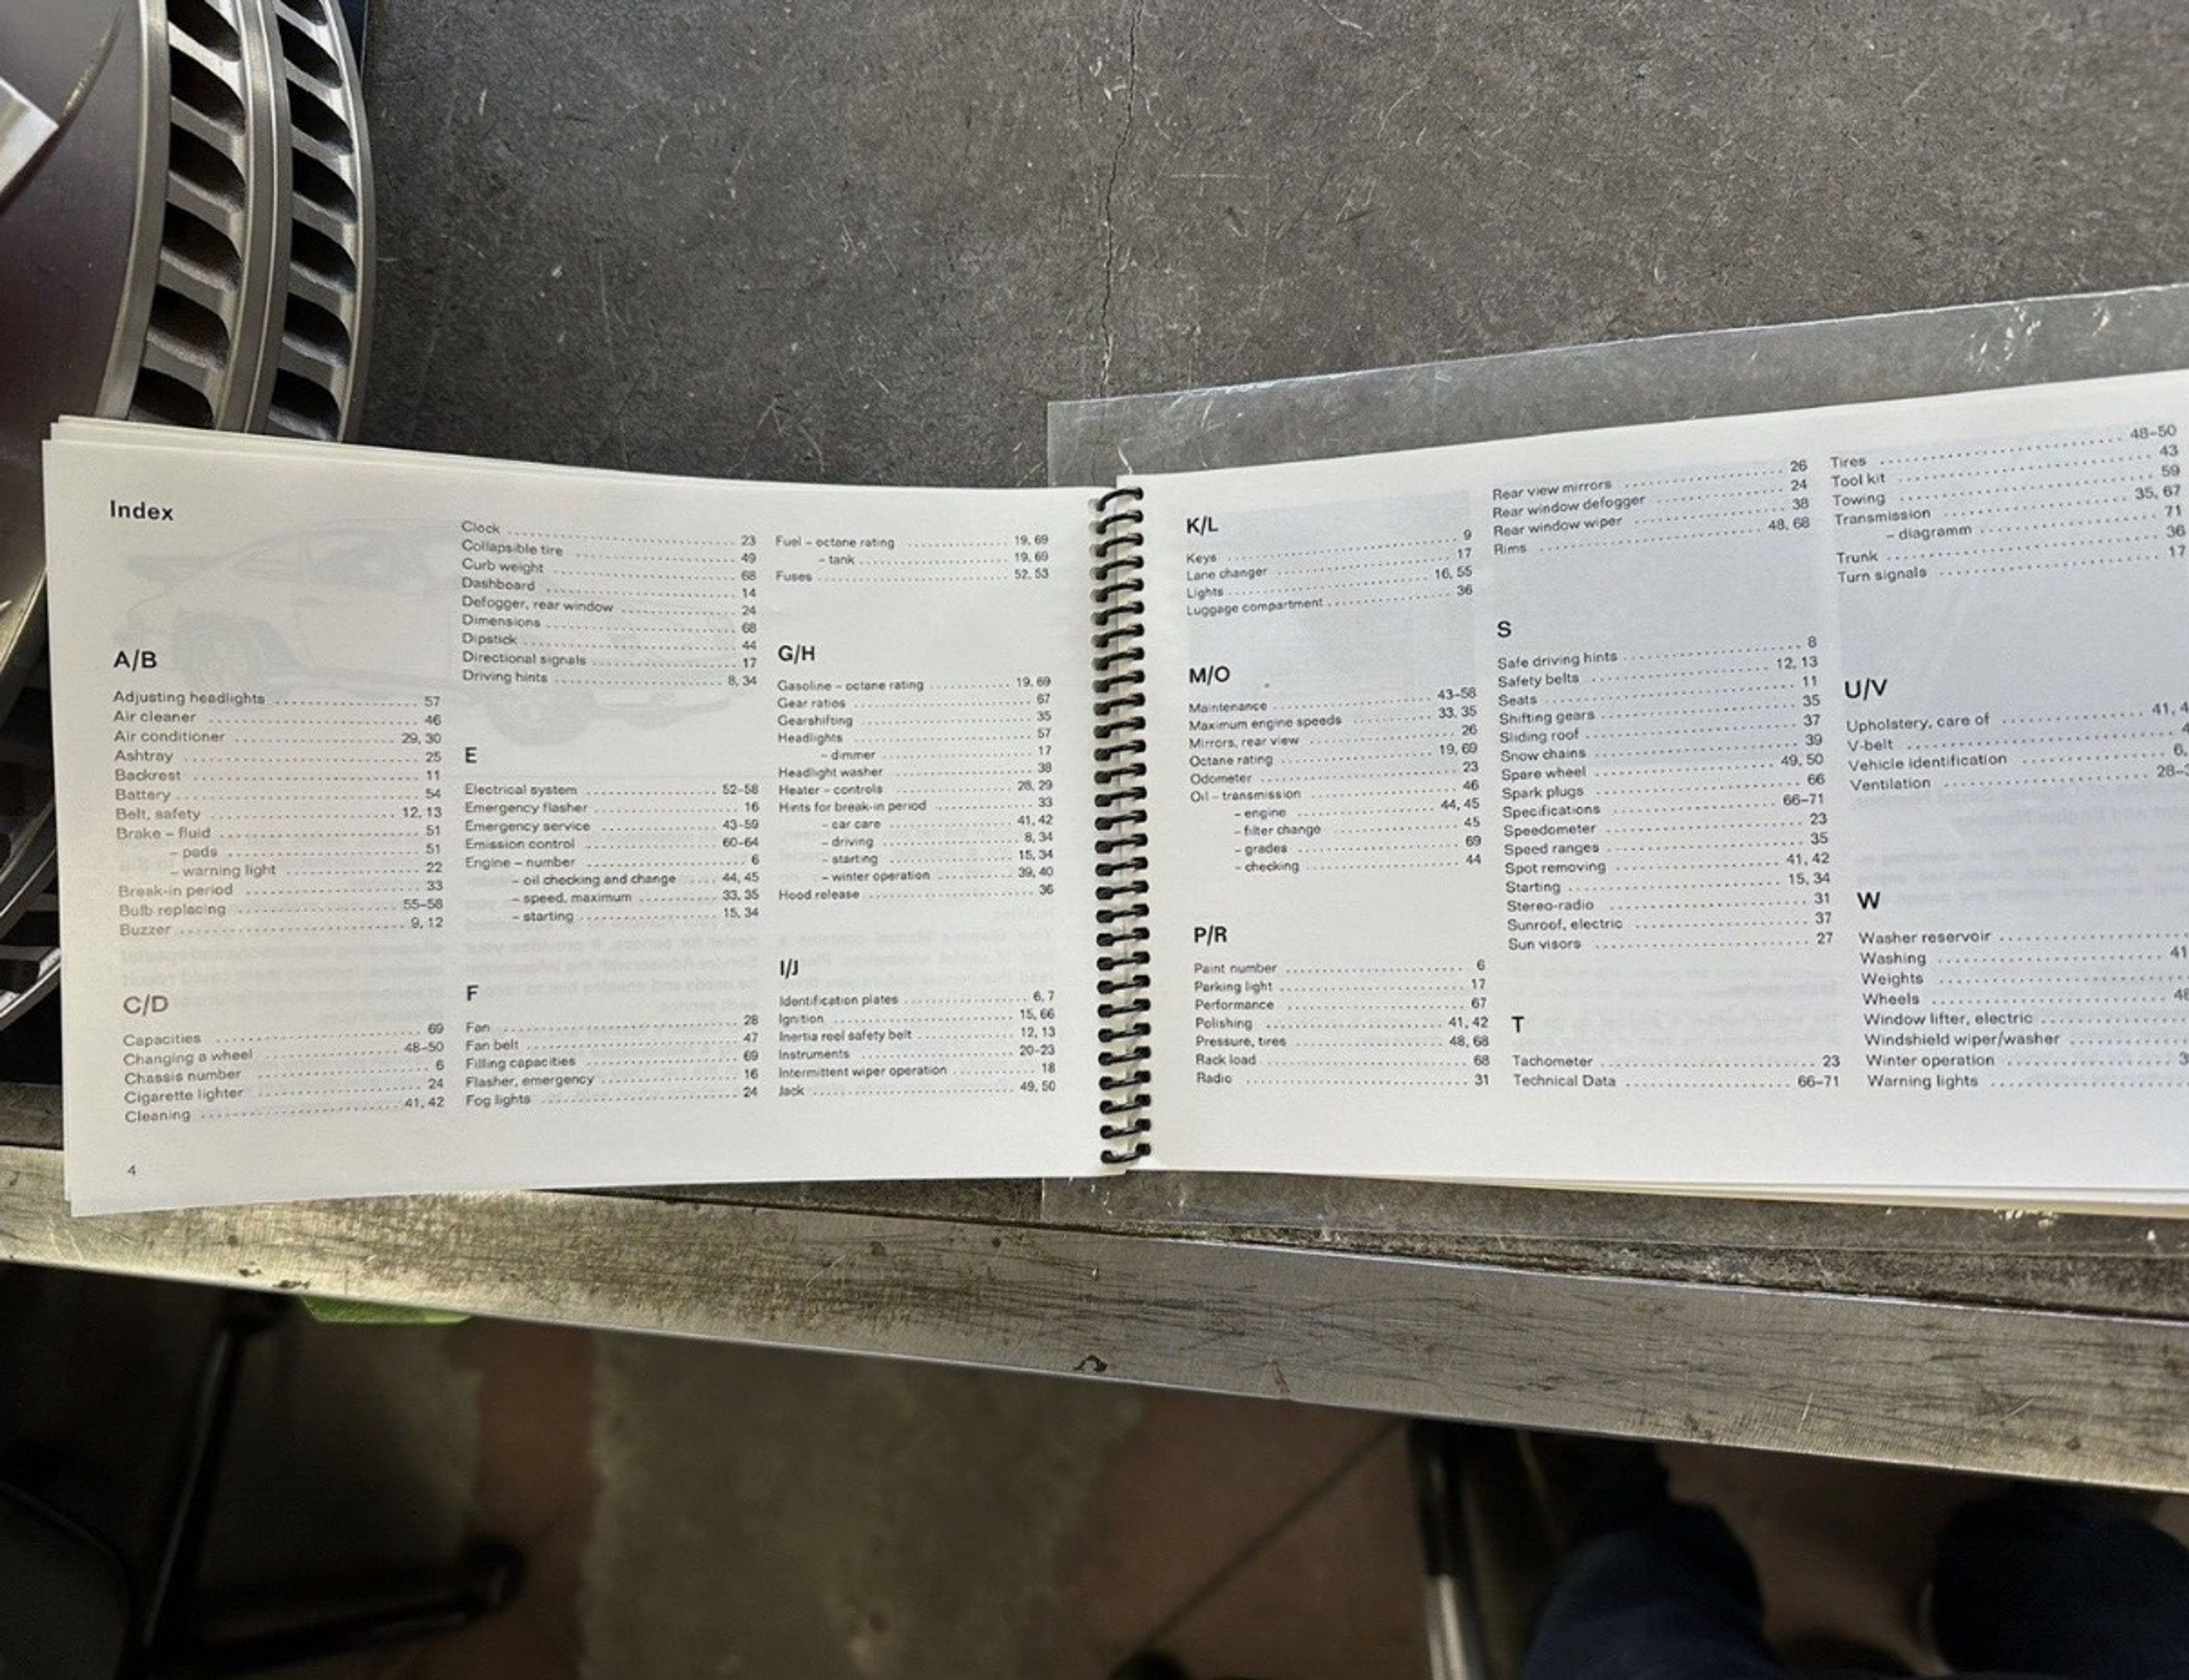 Index
A/B
Adjusting headlights 57
Air cleaner 46
Air conditioner 29, 30
Ashtray 25
Backrest 11
Battery 54
Belt, safety 12, 13
Brake – fluid 51
– pads 51
– warning light 22
Break-in period 33
Bulb replacing 55–58
Buzzer 9, 12
C/D
Capacities 69
Changing a wheel 48–50
Chassis number 6
Cigarette lighter 24
Cleaning 41, 42
4
Clock 23
Collapsible tire 49
Curb weight 68
Dashboard 14
Defogger, rear window 24
Dimensions 68
Dipstick 44
Directional signals 17
Driving hints 8, 34
E
Electrical system 52–58
Emergency flasher 16
Emergency service 43–59
Emission control 60–64
Engine – number 6
– oil checking and change 44, 45
– speed, maximum 33, 35
– starting 15, 34
F
Fan 28
Fan belt 47
Filling capacities 69
Flasher, emergency 16
Fog lights 24
Fuel – octane rating 19, 69
– tank 19, 69
Fuses 52, 53
G/H
Gasoline – octane rating 19, 69
Gear ratios 67
Gearshifting 35
Headlights 57
– dimmer 17
Headlight washer 38
Heater – controls 28, 29
Hints for break-in period 33
– car care 41, 42
– driving 8, 34
– starting 15, 34
– winter operation 39, 40
Hood release 36
I/J
Identification plates 6, 7
Ignition 15, 66
Inertia reel safety belt 12, 13
Instruments 20–23
Intermittent wiper operation 18
Jack 49, 50
K/L
Keys 9
Lane changer 17
Lights 16, 55
Luggage compartment 36
M/O
Maintenance 43–58
Maximum engine speeds 33, 35
Mirrors, rear view 26
Octane rating 19, 69
Odometer 23
Oil – transmission 46
– engine 44, 45
– filter change 45
– grades 69
– checking 44
P/R
Paint number 6
Parking light 17
Performance 67
Polishing 41, 42
Pressure, tires 48, 68
Rack load 68
Radio 31
Rear view mirrors 26
Rear window defogger 24
Rear window wiper 38
Rims 48, 68
S
Safe driving hints 8
Safety belts 12, 13
Seats 11
Shifting gears 35
Sliding roof 37
Snow chains 39
Spare wheel 49, 50
Spark plugs 66
Specifications 66–71
Speedometer 23
Speed ranges 35
Spot removing 41, 42
Starting 15, 34
Stereo-radio 31
Sunroof, electric 37
Sun visors 27
T
Tachometer 23
Technical Data 66–71
Tires 48–50
Tool kit 43
Towing 59
Transmission 35, 67
– diagramm 71
Trunk 36
Turn signals 17
U/V
Upholstery, care of 41, 4
V-belt 4
Vehicle identification 6,
Ventilation 28–
W
Washer reservoir
Washing 41
Weights
Wheels 48
Window lifter, electric
Windshield wiper/washer
Winter operation 3
Warning lights